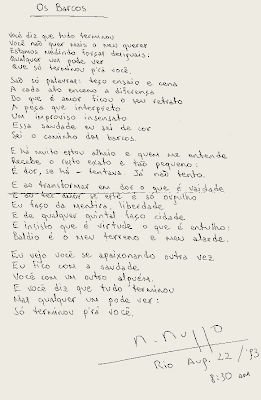 Os Barcos
Você diz que tudo terminou
Você não quer mais o meu querer
Estamos medindo forças desiguais:
Qualquer um pode ver
Que só terminou p'rá você.
São só palavras: teço ensaio e cena
A cada ato enceno a diferença
Do que é amor ficou o seu retrato
A peça que interpreto
Um improviso insensato
Essa saudade eu sei de cor
Sei o caminho dos barcos.
E há muito estou alheio e quem me entende
Recebe o resto exato e tão pequeno:
É dor, se há - tentava. Já não tento.
E ao transformar em dor o que é vaidade
E ao ter amor se este é só orgulho
Eu faço da mentira, liberdade
E de qualquer quintal faço cidade
E insisto que é virtude o que é entulho:
Baldio é o meu terreno e meu alarde.
Eu vejo você se apaixonando outra vez
Eu fico com a saudade
Você com um outro alguém.
E você diz que tudo terminou
Mas qualquer um pode ver:
Só terminou p'rá você.
Rio Aug. 22 / '93
8:30 am